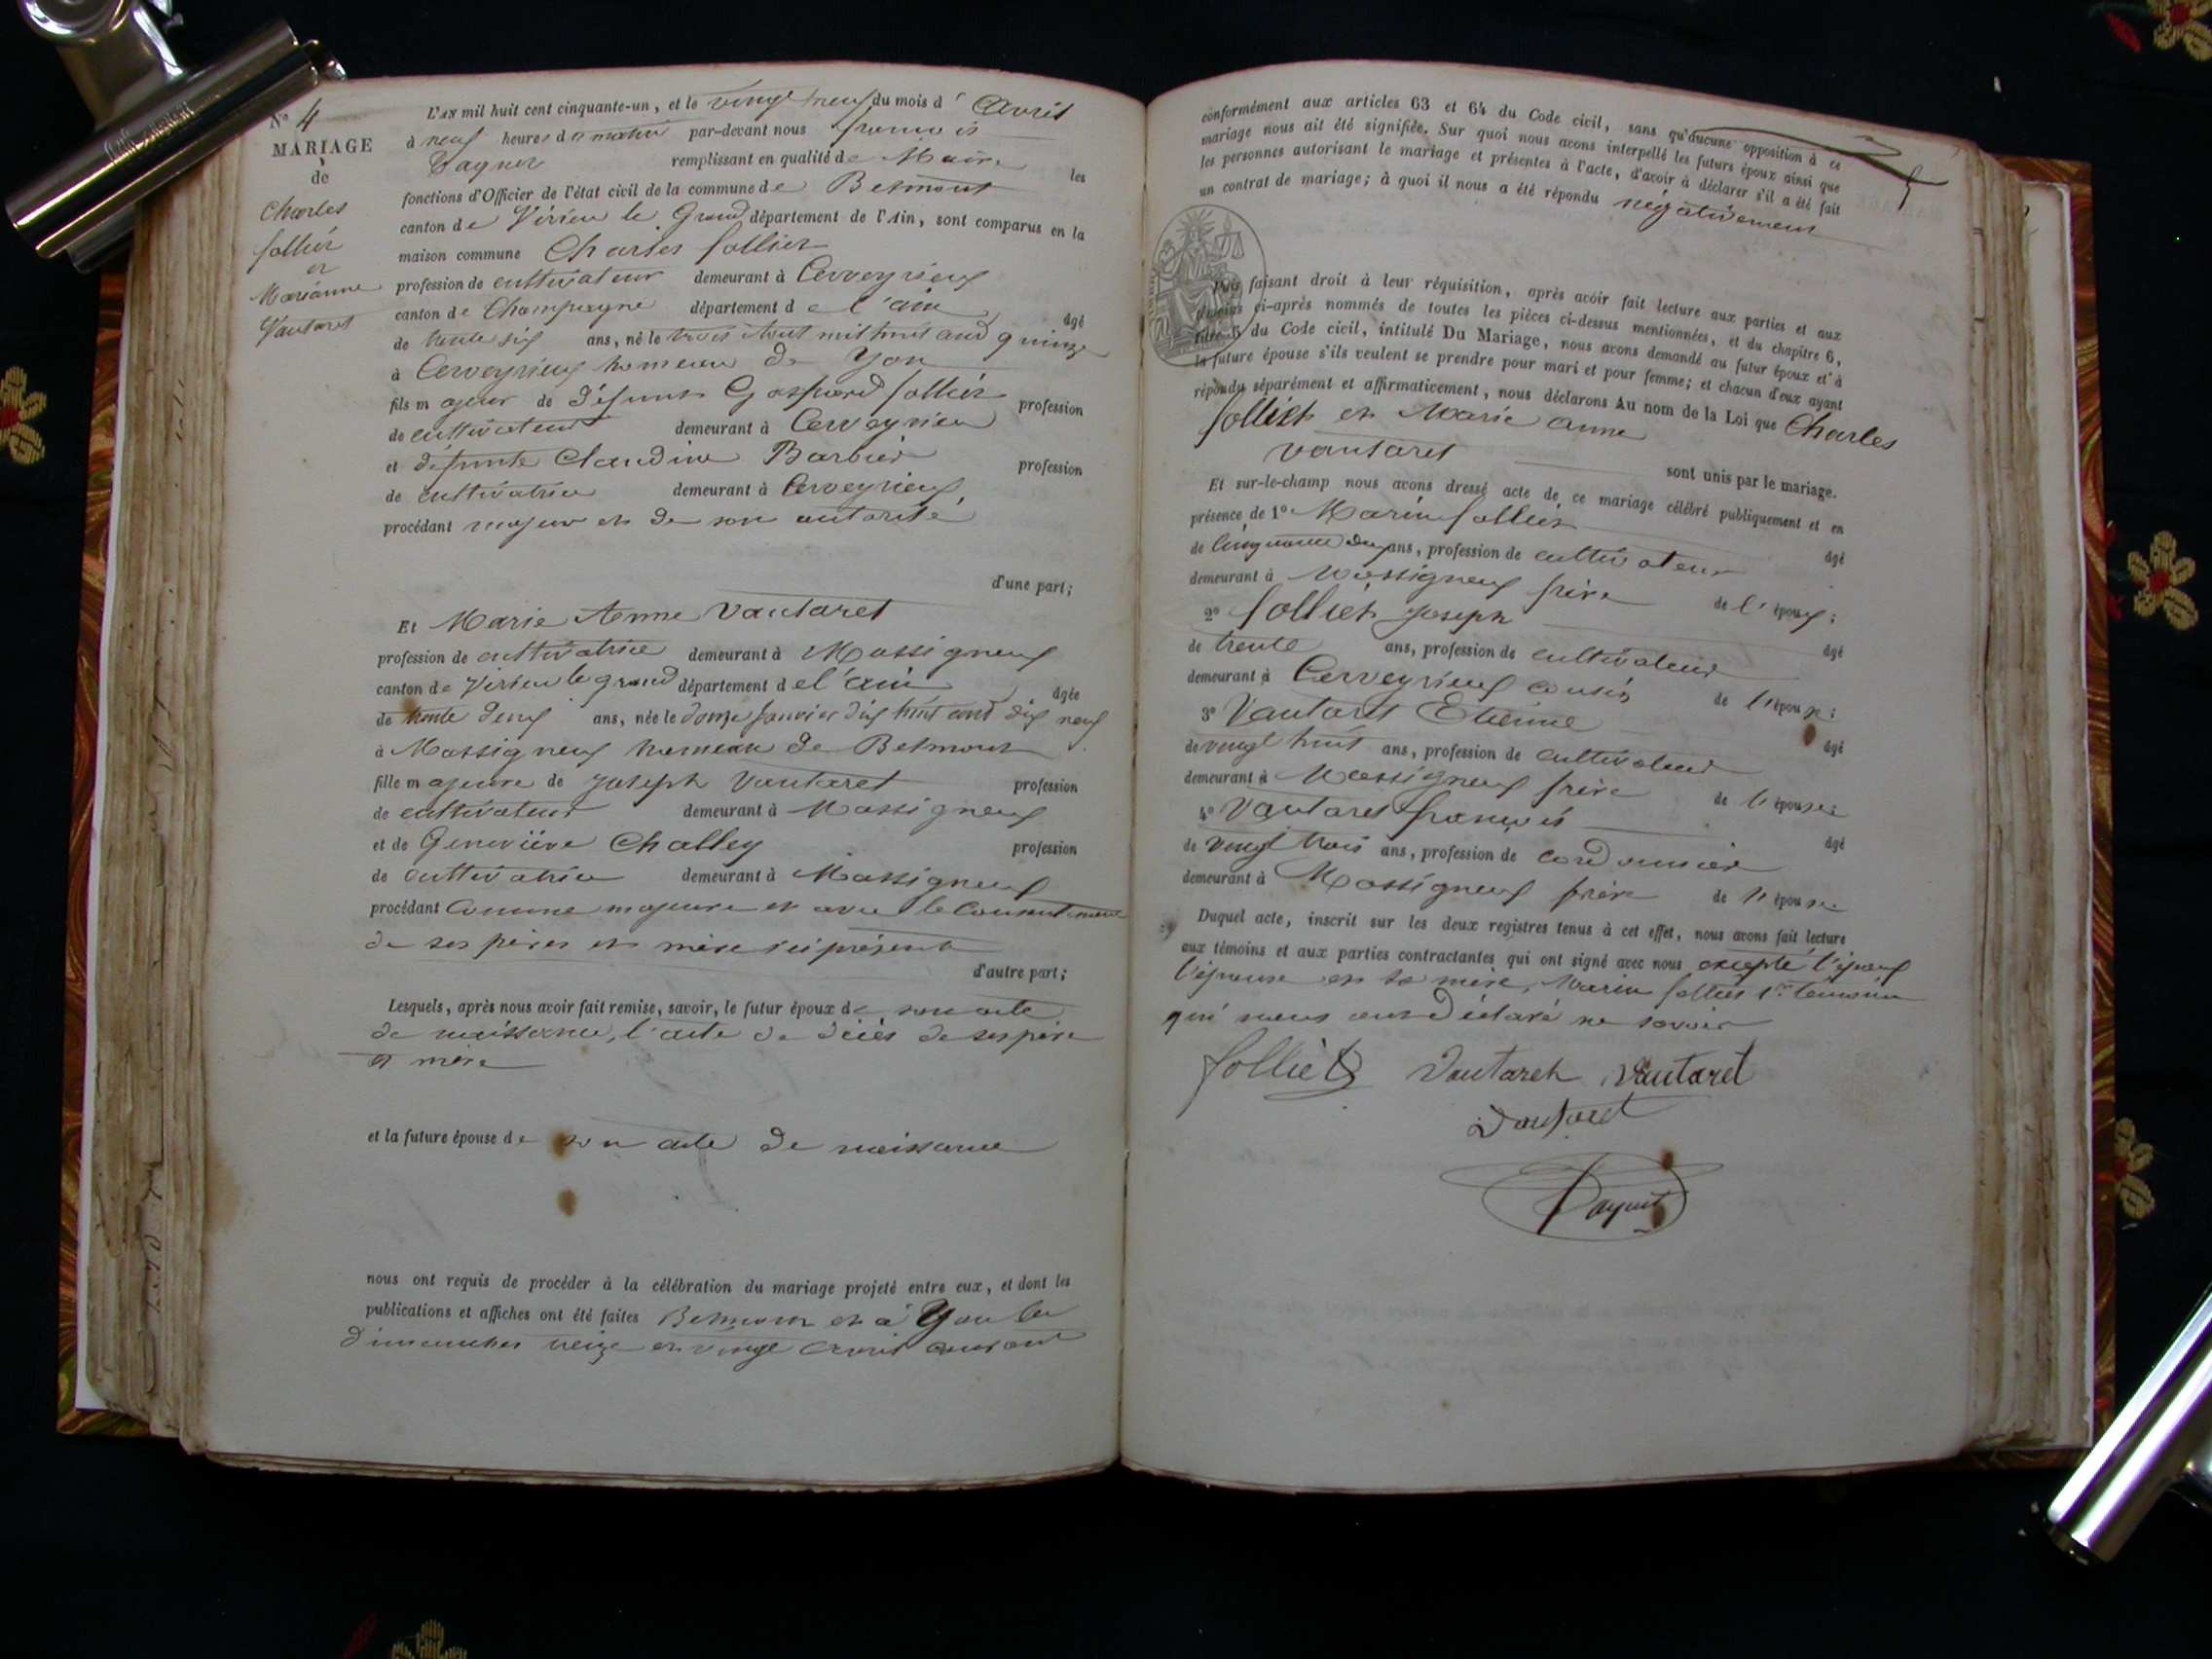 N° 4
MARIAGE
de
Charles
follier
et
Marianne
Vautaret
L'AN mil huit cent cinquante-un, et le vingt neuf du mois d' Avril
à neuf heures du matin par-devant nous françois
remplissant en qualité de Maire les
fonctions d'Officier de l'état civil de la commune de Belmont
canton de Virieu le Grand département de l'Ain, sont comparus en la
maison commune Charles follier
profession de cultivateur demeurant à Cerveyrieux
canton de Champagne département de l'ain âgé
de trente six ans, né le trois Aout mil huit cent quinze
à Cerveyrieux hameau de Yon
fils majeur de défunt Gaspard follier profession
de cultivateur demeurant à Cerveyrieu
et défunte Claudine Barbier profession
de cultivatrice demeurant à Cerveyrieux,
procédant majeur et de son autorité
d'une part;
Et Marie Anne Vautaret
profession de cultivatrice demeurant à Massigneux
canton de Virieu le grand département de l'ain âgée
de trente deux ans, née le douze janvier dix huit cent dix neuf
à Massigneux hameau de Belmont
fille majeure de Joseph Vautaret profession
de cultivateur demeurant à Massigneux
et de Geneviève Challey profession
de cultivatrice demeurant à Massigneux
procédant comme majeure et avec le consentement
de ses pères et mère ici présents
d'autre part;
Lesquels, après nous avoir fait remise, savoir, le futur époux de son acte
de naissance, l'acte de décès de ses père
et mère
et la future épouse de son acte de naissance
nous ont requis de procéder à la célébration du mariage projeté entre eux, et dont les
publications et affiches ont été faites Belmont et à Yon les
Dimanches treize et vingt avril courant
conformément aux articles 63 et 64 du Code civil, sans qu'aucune opposition à ce
mariage nous ait été signifiée. Sur quoi nous avons interpellé les futurs époux ainsi que
les personnes autorisant le mariage et présentes à l'acte, d'avoir à déclarer s'il a été fait
un contrat de mariage; à quoi il nous a été répondu négativement
Puis faisant droit à leur réquisition, après avoir fait lecture aux parties et aux
témoins ci-après nommés de toutes les pièces ci-dessus mentionnées, et du chapitre 6,
titre 5 du Code civil, intitulé Du Mariage, nous avons demandé au futur époux et à
la future épouse s'ils veulent se prendre pour mari et pour femme; et chacun d'eux ayant
répondu séparément et affirmativement, nous déclarons Au nom de la Loi que Charles
folliet et Marie anne
vautaret sont unis par le mariage.
Et sur-le-champ nous avons dressé acte de ce mariage célébré publiquement et en
présence de 1° Marin follier âgé
de cinquante deux ans, profession de cultivateur
demeurant à Massigneux frère de l'époux;
2° folliet Joseph âgé
de trente ans, profession de cultivateur
demeurant à Cerveyrieux cousin de l'époux;
3° Vautaret Etienne âgé
de vingt huit ans, profession de cultivateur
demeurant à Massigneux frère de l'épouse
4° Vautaret françois âgé
de vingt trois ans, profession de cordonnier
demeurant à Massigneux frère de l'épouse
Duquel acte, inscrit sur les deux registres tenus à cet effet, nous avons fait lecture
aux témoins et aux parties contractantes qui ont signé avec nous excepté l'époux
l'épouse et sa mère, Marin follier 1er témoin
qui nous ont déclaré ne savoir
folliet Vautaret Vautaret
Vautaret